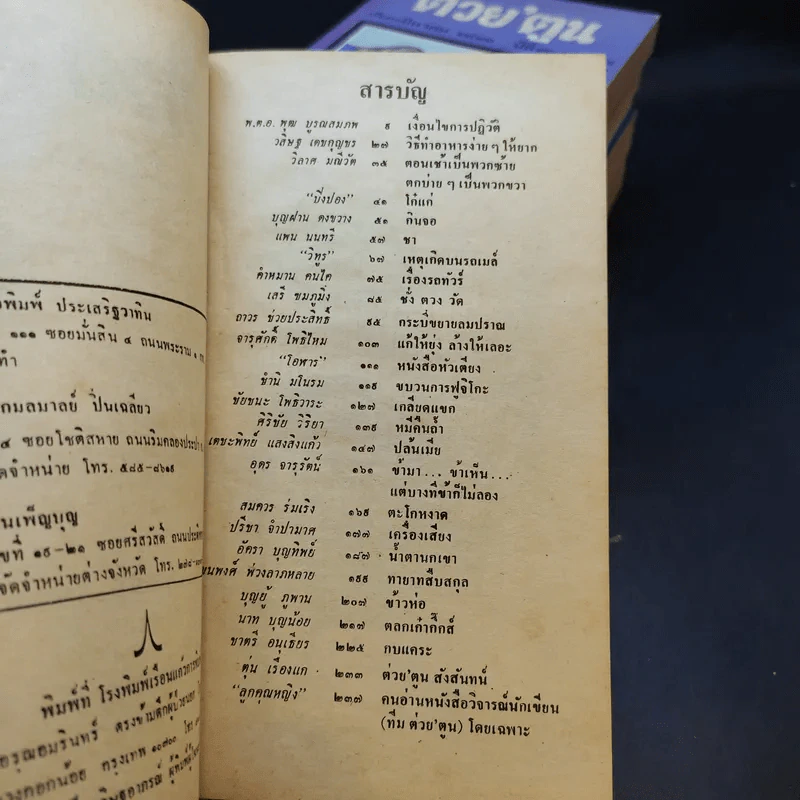 ต่วย'ตูน
สารบัญ
พ.ต.อ. พุฒ บูรณสมภพ ๙ เงื่อนไขการปฏิวัติ
วสิษฐ เดชกุญชร ๒๗ วิธีทำอาหารง่าย ๆ ให้ยาก
วิลาศ มณีวัต ๓๕ ตอนเช้าเป็นพวกซ้าย
ตกบ่าย ๆ เป็นพวกขวา
"บึ่งปอง" ๔๑ โก๋แก่
บุญฝาน ดงขวาง ๕๑ กินจอ
แพน นนทรี ๕๗ ชา
"วิทูร" ๖๗ เหตุเกิดบนรถเมล์
คำหมาน คนไค ๗๕ เรื่องรถทัวร์
เสรี ชมภูมิ่ง ๘๕ ชั่ง ตวง วัด
ถาวร ช่วยประสิทธิ์ ๙๕ กระบี่ขยายลมปราณ
จารุศักดิ์ โพธิ์ไหม ๑๐๓ แก้ให้ยุ่ง ล้างให้เลอะ
"โอฬาร" ๑๑๑ หนังสือหัวเตียง
ชำนิ มโนรม ๑๑๙ ขบวนการฟูจิโกะ
ชัยชนะ โพธิวาระ ๑๒๗ เกลียดแขก
ศิริชัย วิริยา ๑๓๙ หมีคืนถ้ำ
เตชะพิทย์ แสงสิงแก้ว ๑๔๗ ปล้นเมีย
อุดร จารุรัตน์ ๑๖๑ ข้ามา... ข้าเห็น...
แต่บางทีข้าก็ไม่ลอง
สมควร ร่มเริง ๑๖๙ ตะโกหงาด
ปรีชา จำปามาศ ๑๗๗ เครื่องเสียง
อัครา บุญทิพย์ ๑๘๗ น้ำตานกเขา
พงศ์ พ่วงลาภหลาย ๑๙๙ ทายาทสืบสกุล
บุญยู้ ภูพาน ๒๐๗ ข้าวห่อ
นาท บุญน้อย ๒๑๗ ตลกเก๋ากึ๊กส์
ชาตรี อนุเธียร ๒๒๕ กบแคระ
ตุ่น เรืองแก ๒๓๓ ต่วย'ตูน สังสันทน์
"ลูกคุณหญิง" ๒๓๗ คนอ่านหนังสือวิจารณ์นักเขียน
(ทีม ต่วย'ตูน) โดยเฉพาะ
พิมพ์ ประเสริฐวาทิน
๑๑๑ ซอยมั่นสิน ๔ ถนนพระราม
กมลมาลย์ ปิ่นเฉลียว
๔ ซอยโชติสหาย ถนนริมคลองประปา
จัดจำหน่าย โทร. ๕๘๕-๘๖๑๙
เพ็ญบุญ
ที่ ๑๙-๒๑ ซอยศรีสวัสดิ์
จัดจำหน่ายต่างจังหวัด โทร.
พิมพ์ที่ โรงพิมพ์เรือนแก้วการพิมพ์
อรุณอมรินทร์ ตรงข้ามตึกผู้ป่วยนอก
บางกอกน้อย กรุงเทพ ๑๐๗๐๐ โทร